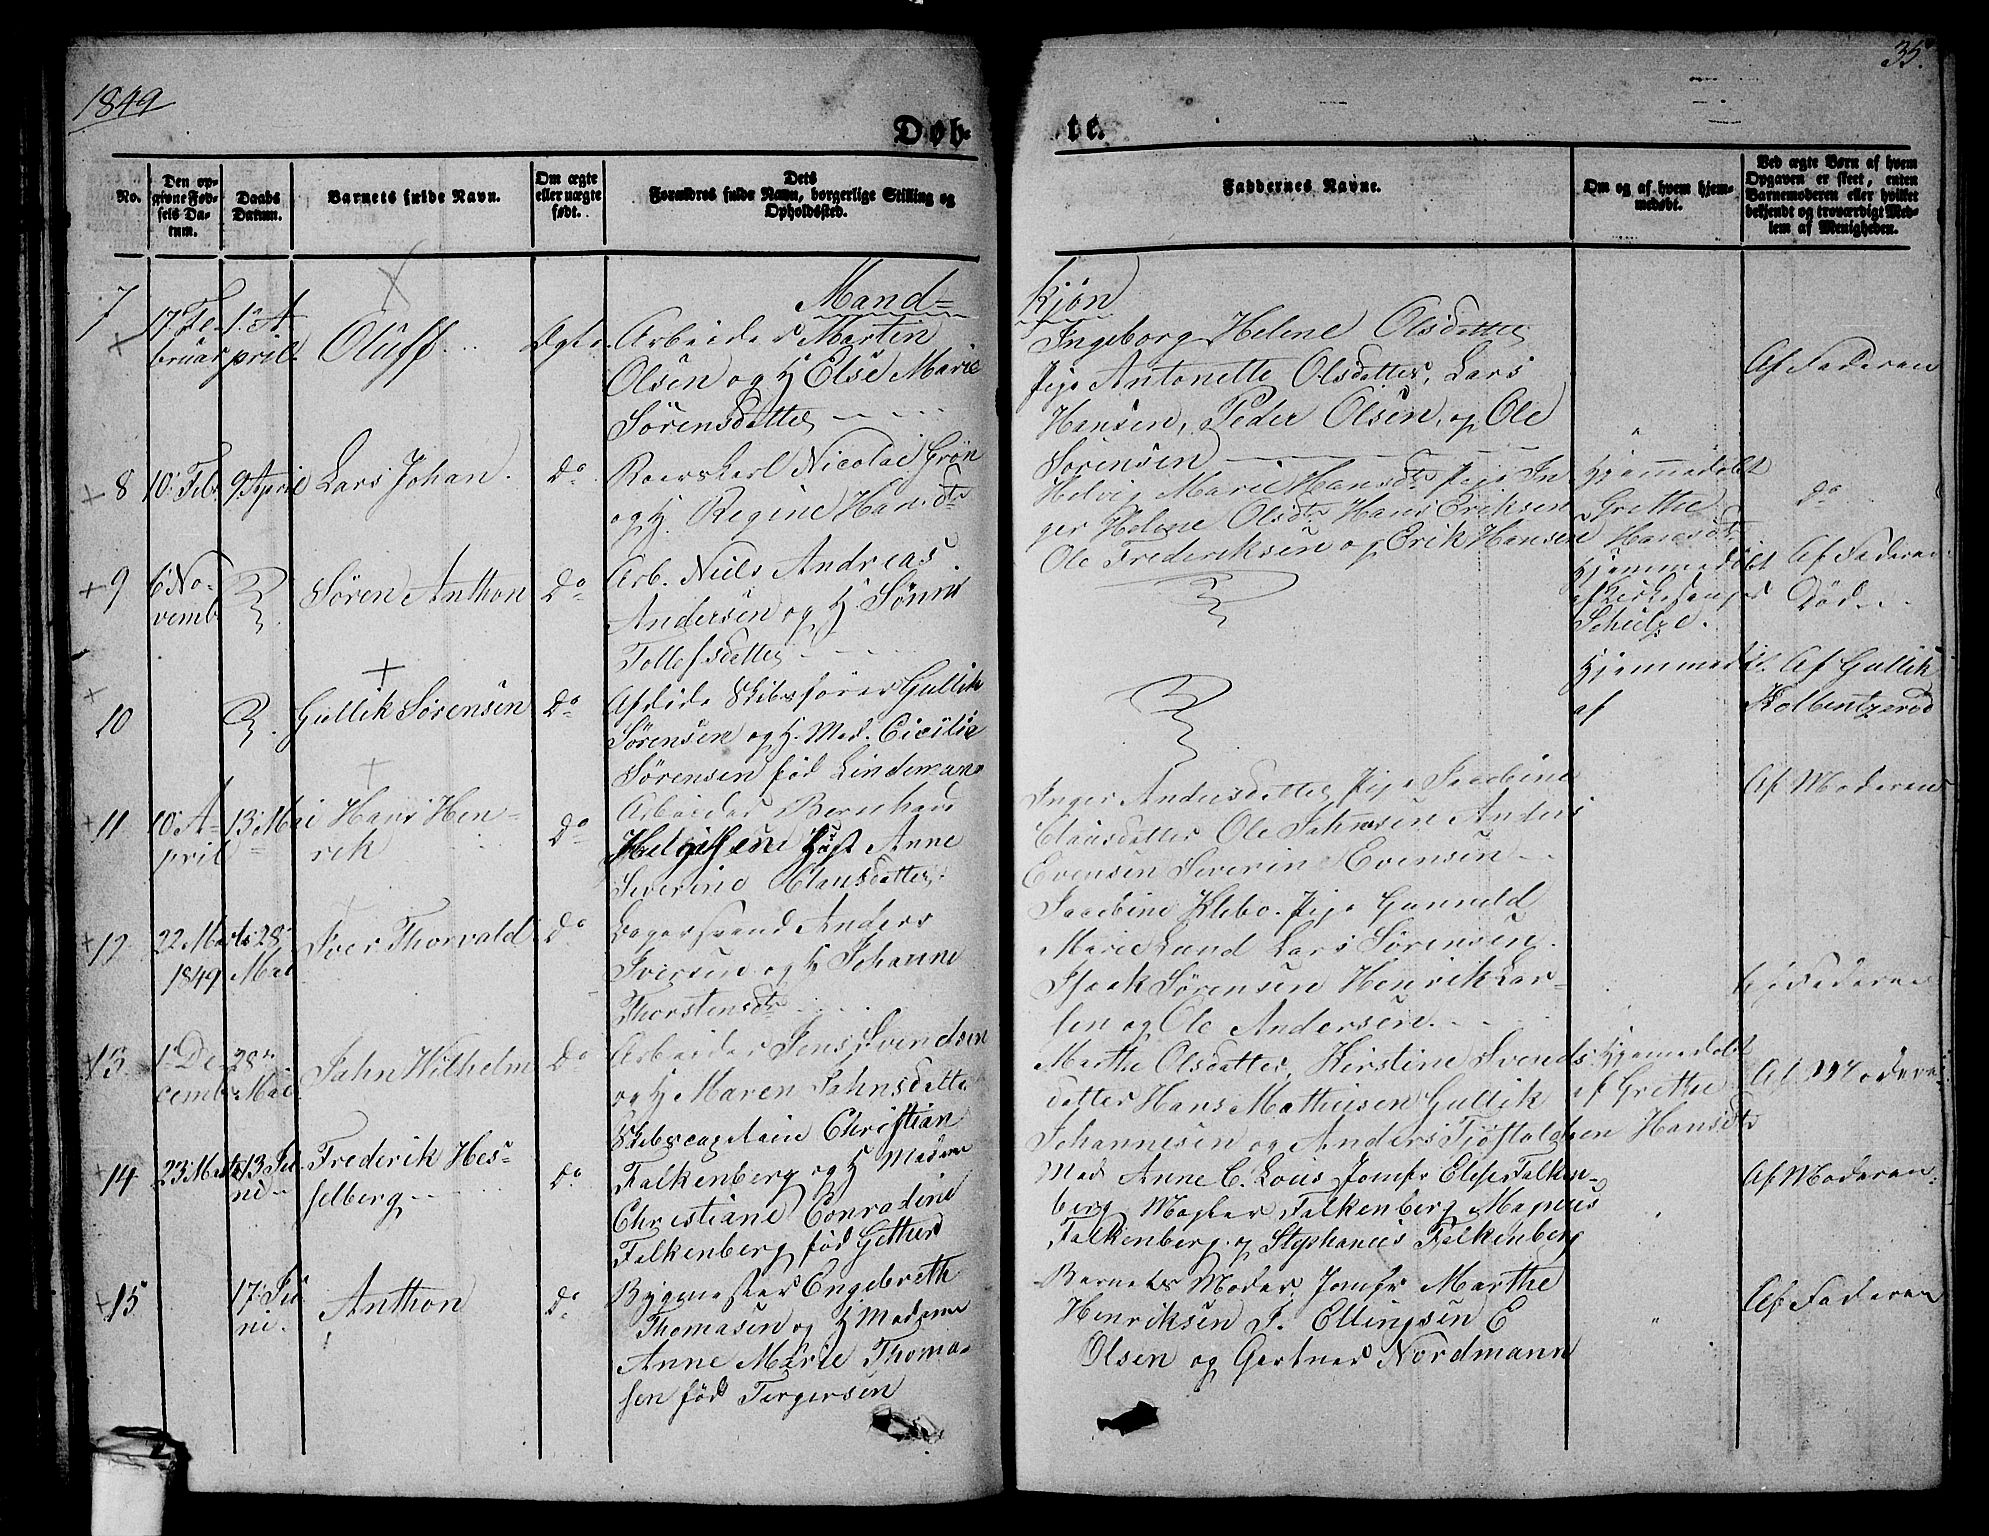 1849
35.
Døb-
te.
No.
Den op-
givne Fød-
sels Da-
tum.
Daabs
Datum.
Barnets fulde Navn.
Om ægte
eller uægte
født.
Dets
Forældres fulde Navn, borgerlige Stilling og
Opholdssted.
Faddernes Navne.
Om og af hvem hjem-
medøbt.
Ved ægte Børn af hvem
Opgaven er skeet, enten
Barnemoderen eller hvilket
bekjendt og troværdigt Med-
lem af Menigheden.
Mand=
kjøn
7
17 Fe-
bruar
1ste A
pril
Oluff
Ægte
Arbeider Martin
Olsen og H Else Marie
Sörensdatter
Ingeborg Helene Olsdatter
Pige Antonette Olsdatter, Lars
Hansen, Peder Olsen, og Ole
Sörensen
Af Faderen
8
10 Feb
9 April
Lars Johan.
Do
Nicolai Grön
og H. Regine Hansdtr
Helvig Marie Hansdtr Pige In
ger Helene Olsdtr Hans Eriksen
Ole Frederiksen og Erik Hansen
Hjemmedøbt
Grethe
Hansdtr
Do
9
6 No-
vemb
Sören Anthon
Do
Arb. Niels Andreas
Andersen og H Sönnev
Tollefsdatter
Hjemmedøbt
af Kirkesanger
Schulze.
Af Faderen
Död
10
Gullik Sørensen
Do
Afdöde Skibsfører Gullik
Sörensen og H. Mad. Cicilia
Sörensen föd Lindeman
Hjemmedøbt
af
Af Gullik
Kolbentzeröd
11
10 A-
pril
13 Mai
Hans Hen-
rik
Do
Arbeider Bernhard
Anne
Severine Clausdatter
Inger Andersdatter Pige Jacobine
Clausdatter Ole Johnsen Anders
Evensen Severin Evensen
Af Moderen
12
22 Marts
1849
28
Mai
Iver Thorvald
Do
Anders
Iversen og H Johanne
Thorstensdtr
Jacobine Klebo. Pige Gunneld
Marie Lund Lars Sörensen.
Isaak Sörensen Henrik Lar-
sen og Ole Andersen.
Af Faderen
13
1 De
cemb
28
Mai
Jahn Wilhelm
Do
Arbeider Jens Svendsen
og H Maren Jahnsdatter
Marthe Olsdatter, Kirstine Svends
datter Hans Mathisen Gullik
Johannesen og Anders Tjöstolfsen
Hjemmedøbt
af Grethe
Hansdtr
Af Moderen
14
23 Marts
13 Ju
ni
Frederik Hes-
selberg
Do
Skibscapitain Christian
Falkenberg og H Madame
Christiane Conradine
Falkenberg föd Gether
Mad Anne C. Louis Jomfr Elise Falken-
berg Mægler Falkenberg Magnus
Falkenberg og Stephanus Falkenberg
Af Moderen
15
17 Ju
ni.
Anthon
Do
Bygmester Engebreth
Thomasen og H Madame
Anne Marie Thoma-
sen föd Tergersen
Barnets Moder, Jomfr Marthe
Henriksen J. Ellingsen E
Olsen og Gertner Nordmann
Af Faderen